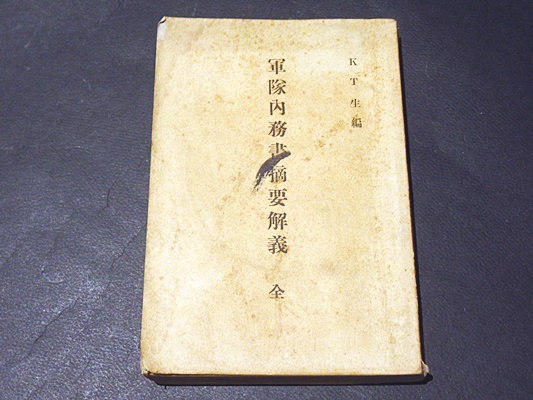 KT生編
軍隊内務書摘要解義 全